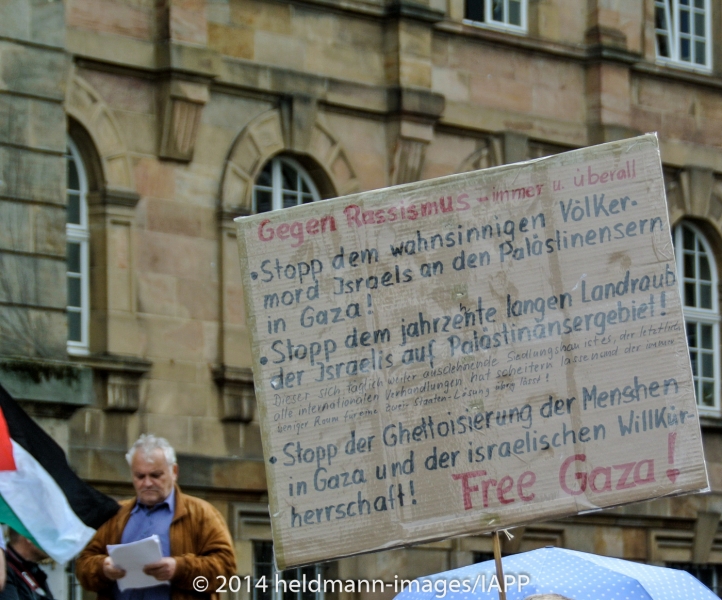 Gegen Rassismus - immer u. überall
• Stopp dem wahnsinnigen Völker-
mord Israels an den Palästinensern
in Gaza!
• Stopp dem jahrzehte langen Landraub
der Israelis auf Palästinänsergebiet!
Dieser sich täglich weiter ausdehnende Siedlungsbau ist es, der letztlich
alle internationalen Verhandlungen hat scheitern lassen und der immer
weniger Raum für eine zwei Staaten-Lösung übrig lässt!
• Stopp der Ghettoisierung der Menshen
in Gaza und der israelischen Willkür-
herrschaft!
Free Gaza!
© 2014 heldmann-images/IAPP